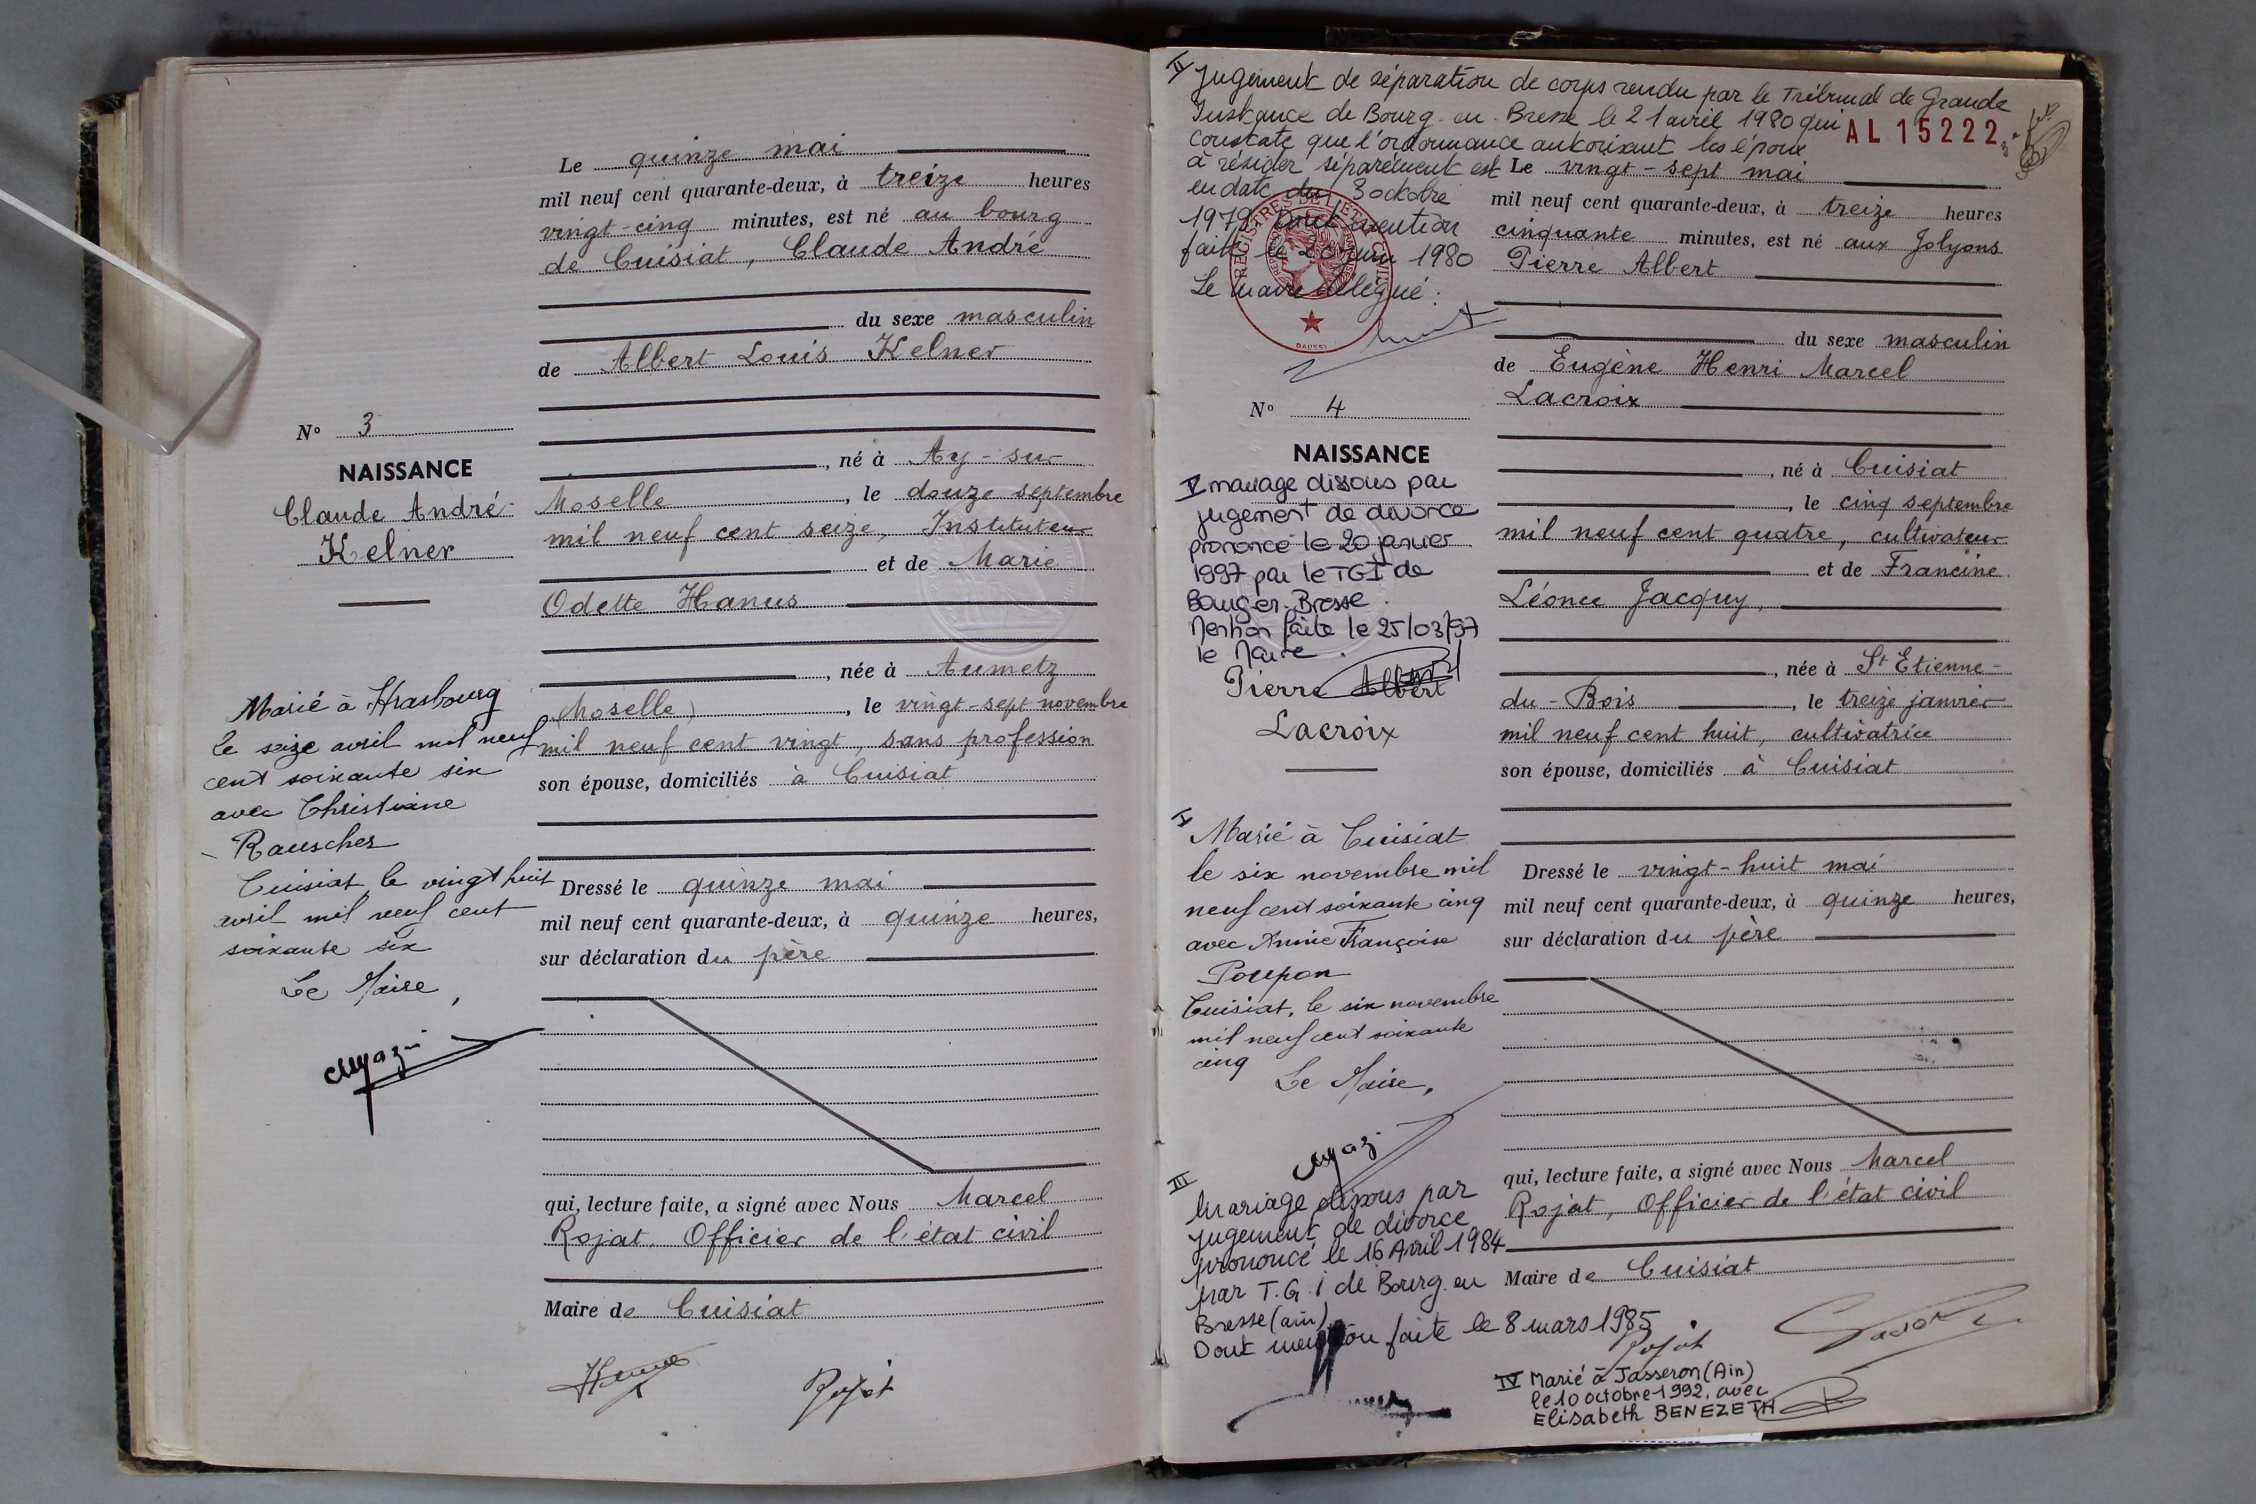 Le quinze mai
mil neuf cent quarante-deux, à treize heures
vingt-cinq minutes, est né au bourg
de Cuisiat, Claude André
du sexe masculin
de Albert Louis Kelner
, né à Ay-sur
Moselle, le douze septembre
mil neuf cent seize, Instituteur
et de Marie
Odette Hanus
, née à Aumetz
(Moselle), le vingt-sept novembre
mil neuf cent vingt, sans profession
son épouse, domiciliés à Cuisiat
Dressé le quinze mai
mil neuf cent quarante-deux, à quinze heures,
sur déclaration du père
qui, lecture faite, a signé avec Nous Marcel
Rojat, Officier de l'état civil
Maire de Cuisiat
Rojat
N° 3
NAISSANCE
Claude André
Kelner
Marié à Strasbourg
le seize avril mil neuf
cent soixante six
avec Christiane
Rauscher
Cuisiat le vingt huit
avril mil neuf cent
soixante six
Le Maire,
II Jugement de séparation de corps rendu par le Tribunal de Grande
Instance de Bourg-en-Bresse le 21 avril 1980 qui
constate que l'ordonnance autorisant les époux
à résider séparément est
en date du 3 octobre
1979. Dont mention
faite le 20 juin 1980
Le maire délégué :
AL 15222
REGISTRES DE L'ETAT CIVIL
N° 4
NAISSANCE
V mariage dissous par
jugement de divorce
prononcé le 20 janvier
1997 par le TGI de
Bourg-en-Bresse.
Mention faite le 25/03/97
le Maire.
Pierre Albert
Lacroix
I Marié à Cuisiat
le six novembre mil
neuf cent soixante cinq
avec Annie Françoise
Poupon
Cuisiat, le six novembre
mil neuf cent soixante
cinq
Le Maire,
III
Mariage dissous par
jugement de divorce
prononcé le 16 Avril 1984
par T.G.I de Bourg en
Bresse (ain)
Dont mention faite le 8 mars 1985
Le vingt-sept mai
mil neuf cent quarante-deux, à treize heures
cinquante minutes, est né aux Jolyons
Pierre Albert
du sexe masculin
de Eugène Henri Marcel
Lacroix
, né à Cuisiat
, le cinq septembre
mil neuf cent quatre, cultivateur
et de Francine
Léonie Jacquy,
, née à St Etienne-
du-Bois, le treize janvier
mil neuf cent huit, cultivatrice
son épouse, domiciliés à Cuisiat
Dressé le vingt-huit mai
mil neuf cent quarante-deux, à quinze heures,
sur déclaration du père
qui, lecture faite, a signé avec Nous Marcel
Rojat, Officier de l'état civil
Maire de Cuisiat
Rojat
IV Marié à Jasseron (Ain)
le 10 octobre 1992, avec
Elisabeth BENEZETH